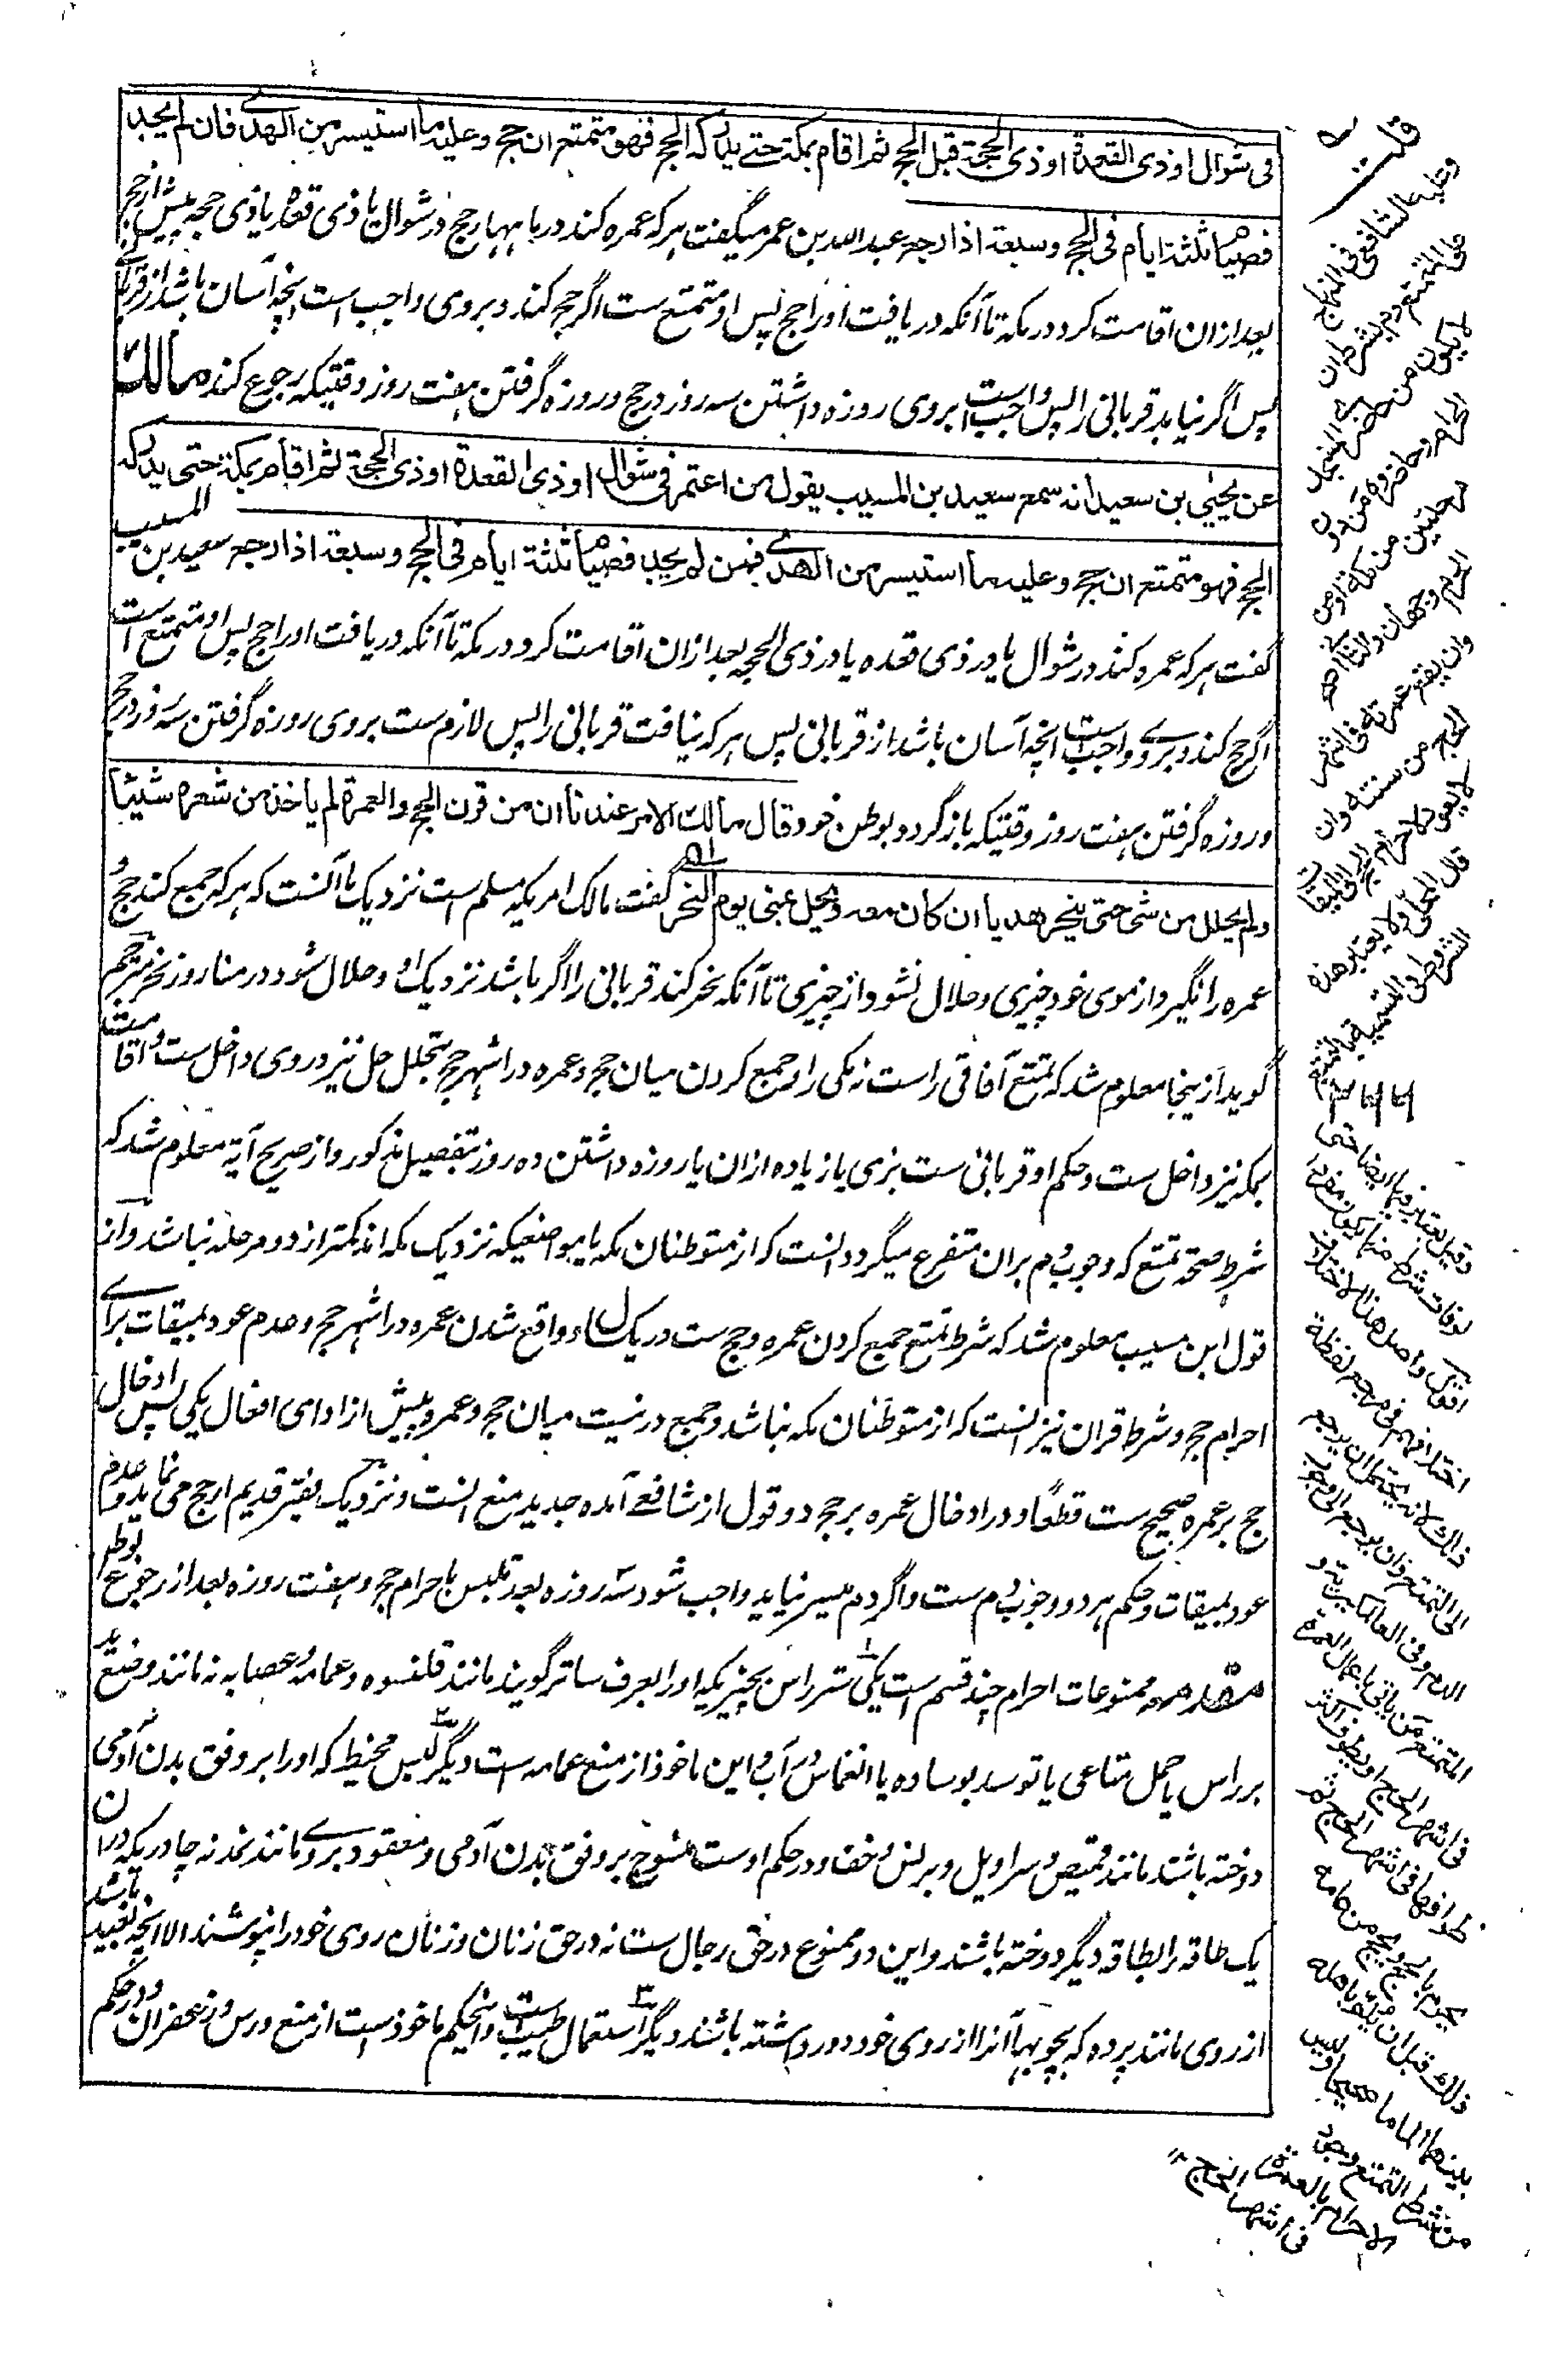 فی شوال او ذی القعدة او ذی الحجة قبل الحج ثم اقام بمکة حتے یدرکه الحج فهو متمتع ان حج و علیه ما استیسر من الهدی فان لم یجد
فصیام ثلثة ایام فی الحج وسبعة اذا رجع عبدالله بن عمر میگفت هر که عمره کند در ماههای حج در شوال یا ذی قعده یا ذی حجه پیش از حج
بعد ازان اقامت کرد در مکه تا آنکه دریافت او را حج پس او متمتع ست اگر حج کند و بروی واجب است انچه آسان باشد از قربانی
پس اگر نیابد قربانی را پس واجب است بروی روزه داشتن سه روز در حج و روزه گرفتن هفت روز وقتیکه رجوع کند مالك
عن یحیی بن سعید انه سمع سعید بن المسیب یقول من اعتمر فی شوال او ذی القعدة او ذی الحجة ثم اقام بمکة حتی یدرکه
الحج فهو متمتع ان حج وعلیه ما استیسر من الهدے فمن لم یجد فصیام ثلثة ایام فی الحج وسبعة اذا رجع سعید بن المسیب
گفت هر که عمره کند در شوال یا در ذی قعده یا در ذی الحجه بعد ازان اقامت کرد در مکه تا آنکه دریافت او را حج پس او متمتع است
اگر حج کند و برے واجب است انچه آسان باشد از قربانی پس هر که نیافت قربانی را پس لازم ست بروی روزه گرفتن سه روز در حج
و روزه گرفتن هفت روز وقتیکه باز گردد بوطن خود قال مالك الامر عندنا ان من قرن الحج والعمرة لم یاخذ من شعره شیئا
ولم یحلل من شی حتی ینحر هدیا ان کان معه ویحل بمنی یوم النحر گفت مالک امریکه مسلم است نزدیک ما آنست که هر که جمع کند حج و
عمره را نگیرد از موی خود چیزی و حلال نشود از چیزی تا آنکه نحر کند قربانی را اگر باشد نزدیک او و حلال شود در منا روز نحر مترجم
گوید از ینجا معلوم شد که تمتع آفاقی راست نه مکی را و جمع کردن میان حج و عمره در اشهر حج بتخلل حل نیز در وی داخل ست و اقامت
بمکه نیز داخل ست و حکم او قربانی ست بزی یا زیاده ازان یا روزه داشتن ده روز بتفصیل مذکور و از صریح آیة معلوم شد که
شرط صحة تمتع که وجوب دم بران متفرع میگردد انست که از متوطنان مکه یا بمواضعیکه نزدیک مکه اند کمتر از دو مرحله نباشد و از
قول ابن مسیب معلوم شد که شرط تمتع جمع کردن عمره و حج ست در یک سال و واقع شدن عمره در اشهر حج و عدم عود بمیقات براے
احرام حج و شرط قران نیز انست که از متوطنان مکه نباشد و جمع درنیت میان حج و عمره پیش از ادای افعال یکی پس ادخال
حج بر عمره صحیح ست قطعًا و در ادخال عمره بر حج دو قول از شافعے آمده جدید منع انست و نزدیک فقیر قدیم ارجح می نماید و عدم
عود بمیقات و حکم هر دو وجوب دم ست و اگر دم میسر نیاید واجب شود سه روزه بعد تلبس باحرام حج و هفت روزه بعد از رجوع بوطن
مقدمه ممنوعات احرام چند قسم است یکی ستر راس بچیزیکه او را بعرف ساتر گویند مانند قلنسوه و عمامه و عصابه نه مانند وضع ید
بر راس یا حمل متاعی یا توسد بوساده یا انغماس در آب و این ماخوذ از منع عمامه است دیگر لبس مخیط که او را بر وفق بدن آدمی
دوخته باشند مانند قمیص و سراویل و برنس و خف و در حکم اوست منسوج بر وفق بدن آدمی و معقود بروے مانند نمد نه چادریکه دران
یک طاقه را بطاقه دیگر دوخته باشند و این دو ممنوع در حق رجال ست نه در حق زنان و زنان روی خود را نپوشند الا انچه بعید باشد
از روی مانند پرده که بچوبها آنرا از روی خود دور داشته باشند دیگر استعمال طیب است و اینحکم ماخوذ ست از منع ورس و زعفران و در حکم
قلت
وعلیه الشافعی
لا یکون من حاضری المسجد
الحرام وحاضروه من دون
مرحلتین من مکة او من
الحرم وجهان
وان یقع عمرته فی اشهر
الحج من سنته وان
لا یعود لاحرام الحج الی المیقات
قال المحلی ولا یعتبر هذه
الشروط فی التسمیة
۲۶۶
ذلك قبل ان یلم باهله
بینهما الماما صحیحا ولیس
من شرط التمتع وجود
الاحرام بالعمرة
فی اشهر الحج ۱۲